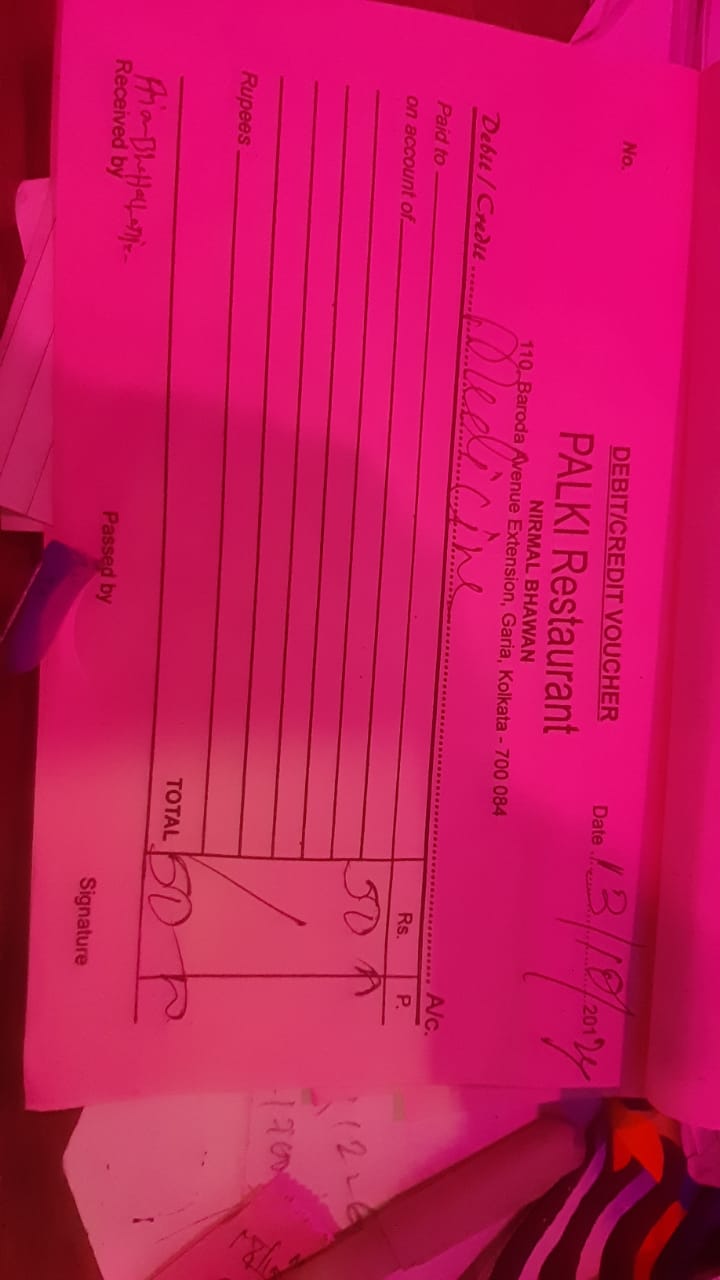 DEBIT/CREDIT VOUCHER
No.
Date 13/10/2012024
PALKI Restaurant
NIRMAL BHAWAN
110, Baroda Avenue Extension, Garia, Kolkata - 700 084
Debit / Credit Medicine A/c.
Paid to
on account of Rs. P.
50
Rupees
TOTAL 50
Received by Passed by Signature
1200